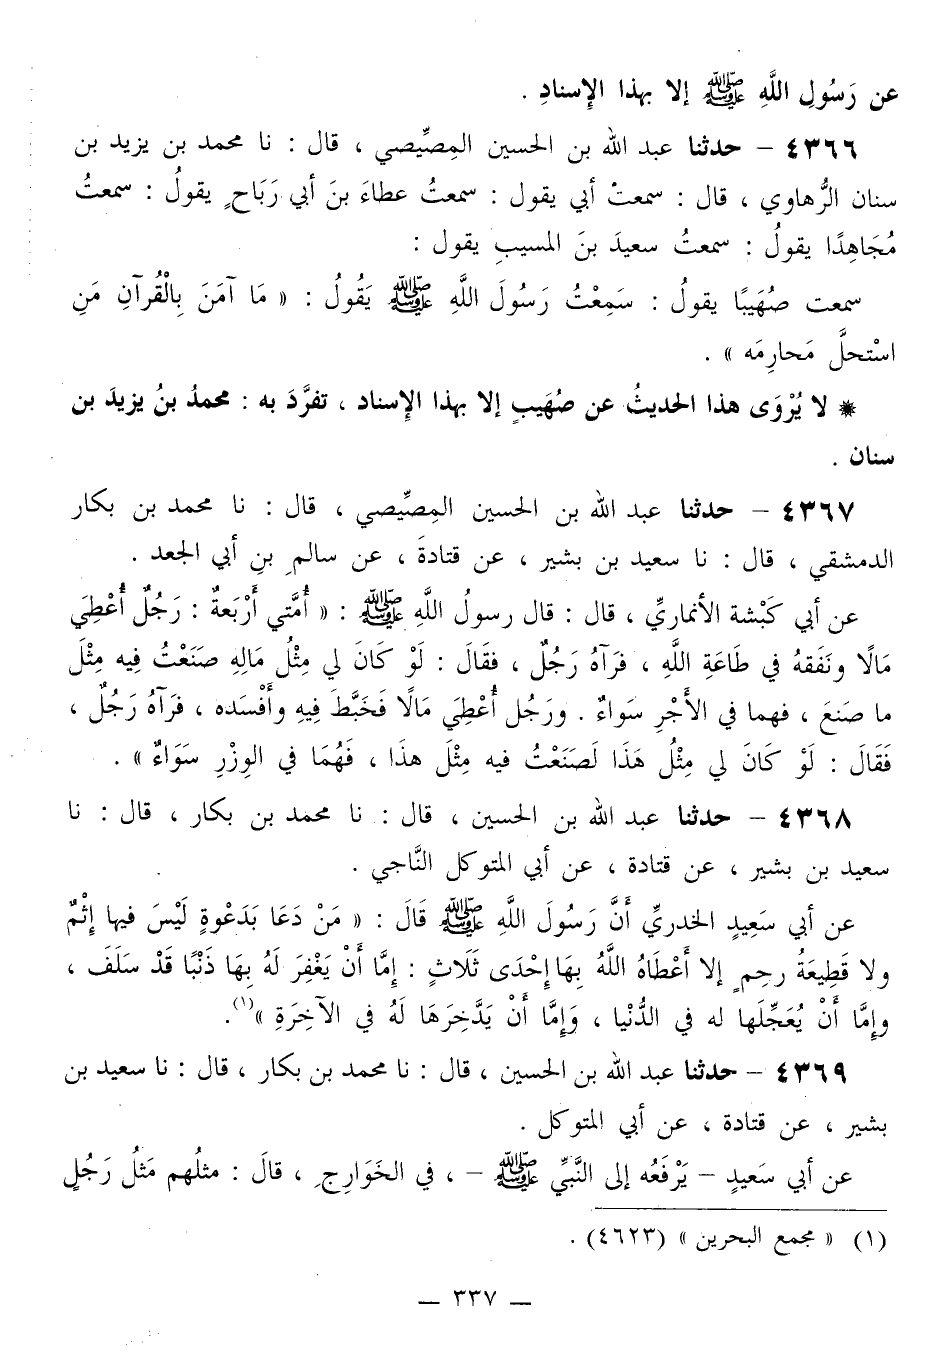 عن رَسُولِ اللَّهِ ﷺ إلا بهذا الإسنادِ .
٤٣٦٦ – حدثنا عبد الله بن الحسين المِصِّيصي ، قال : نا محمد بن يزيد بن
سنان الرُّهاوي ، قال : سمعتُ أبي يقول : سمعتُ عطاءَ بنَ أبي رَبَاحٍ يقولُ : سمعتُ
مُجَاهِدًا يقولُ : سمعتُ سعيدَ بنَ المسيبِ يقول :
سمعت صُهَيبًا يقولُ : سَمِعْتُ رَسُولَ اللَّهِ ﷺ يَقُولُ : « مَا آمَنَ بِالْقُرآنِ مَنِ
اسْتحلَّ مَحارِمَه » .
* لا يُرْوَى هذا الحديثُ عن صُهَيبٍ إلا بهذا الإسناد ، تفرَّدَ به : محمدُ بنُ يزيدَ بن
سنان .
٤٣٦٧ – حدثنا عبد الله بن الحسين المِصِّيصي ، قال : نا محمد بن بكار
الدمشقي ، قال : نا سعيد بن بشير ، عن قتادةَ ، عن سالمِ بنِ أبي الجعد .
عن أبي كَبْشة الأنماريِّ ، قال : قال رسولُ اللَّهِ ﷺ : « أُمَّتي أَرْبَعةٌ : رَجُلٌ أُعْطِيَ
مَالًا ونَفَقهُ في طَاعَةِ اللَّهِ ، فَرَآهُ رَجُلٌ ، فقَالَ : لَوْ كَانَ لي مِثْلُ مَالِهِ صَنَعْتُ فِيه مِثْلَ
ما صَنعَ ، فهما في الأَجْرِ سَواءٌ . ورَجُل أُعْطِيَ مَالًا فَخَبَّطَ فِيهِ وأَفْسَده ، فرَآهُ رَجُلٌ ،
فَقَالَ : لَوْ كَانَ لي مِثْلُ هَذَا لَصَنَعْتُ فيه مِثْلَ هذَا ، فَهُمَا في الوِزْرِ سَوَاءٌ » .
٤٣٦٨ – حدثنا عبد الله بن الحسين ، قال : نا محمد بن بكار ، قال : نا
سعيد بن بشير ، عن قتادة ، عن أبي المتوكل النَّاجي .
عن أبي سَعِيدٍ الخدريِّ أَنَّ رَسُولَ اللَّهِ ﷺ قَالَ : « مَنْ دَعَا بَدَعْوةٍ لَيْسَ فيها إثْمٌ
ولا قَطِيعَةُ رحِمٍ إلا أَعْطَاهُ اللَّهُ بِهَا إحْدَى ثَلَاثٍ : إمَّا أَنْ يَغْفِرَ لَهُ بِهَا ذَنْبًا قَدْ سَلَفَ ،
وإِمَّا أَنْ يُعَجِّلَها له في الدُّنْيا ، وَإِمَّا أَنْ يَدَّخِرَهَا لَهُ في الآخِرَةِ »(١).
٤٣٦٩ – حدثنا عبد الله بن الحسين ، قال : نا محمد بن بكار ، قال : نا سعيد بن
بشير ، عن قتادة ، عن أبي المتوكل .
عن أبي سَعيدٍ – يَرْفَعُه إلى النَّبِيِّ ﷺ – ، في الخَوَارِجِ ، قالَ : مثلُهم مَثلُ رَجُلٍ
(١) « مجمع البحرين » (٤٦٢٣) .
– ٣٣٧ –